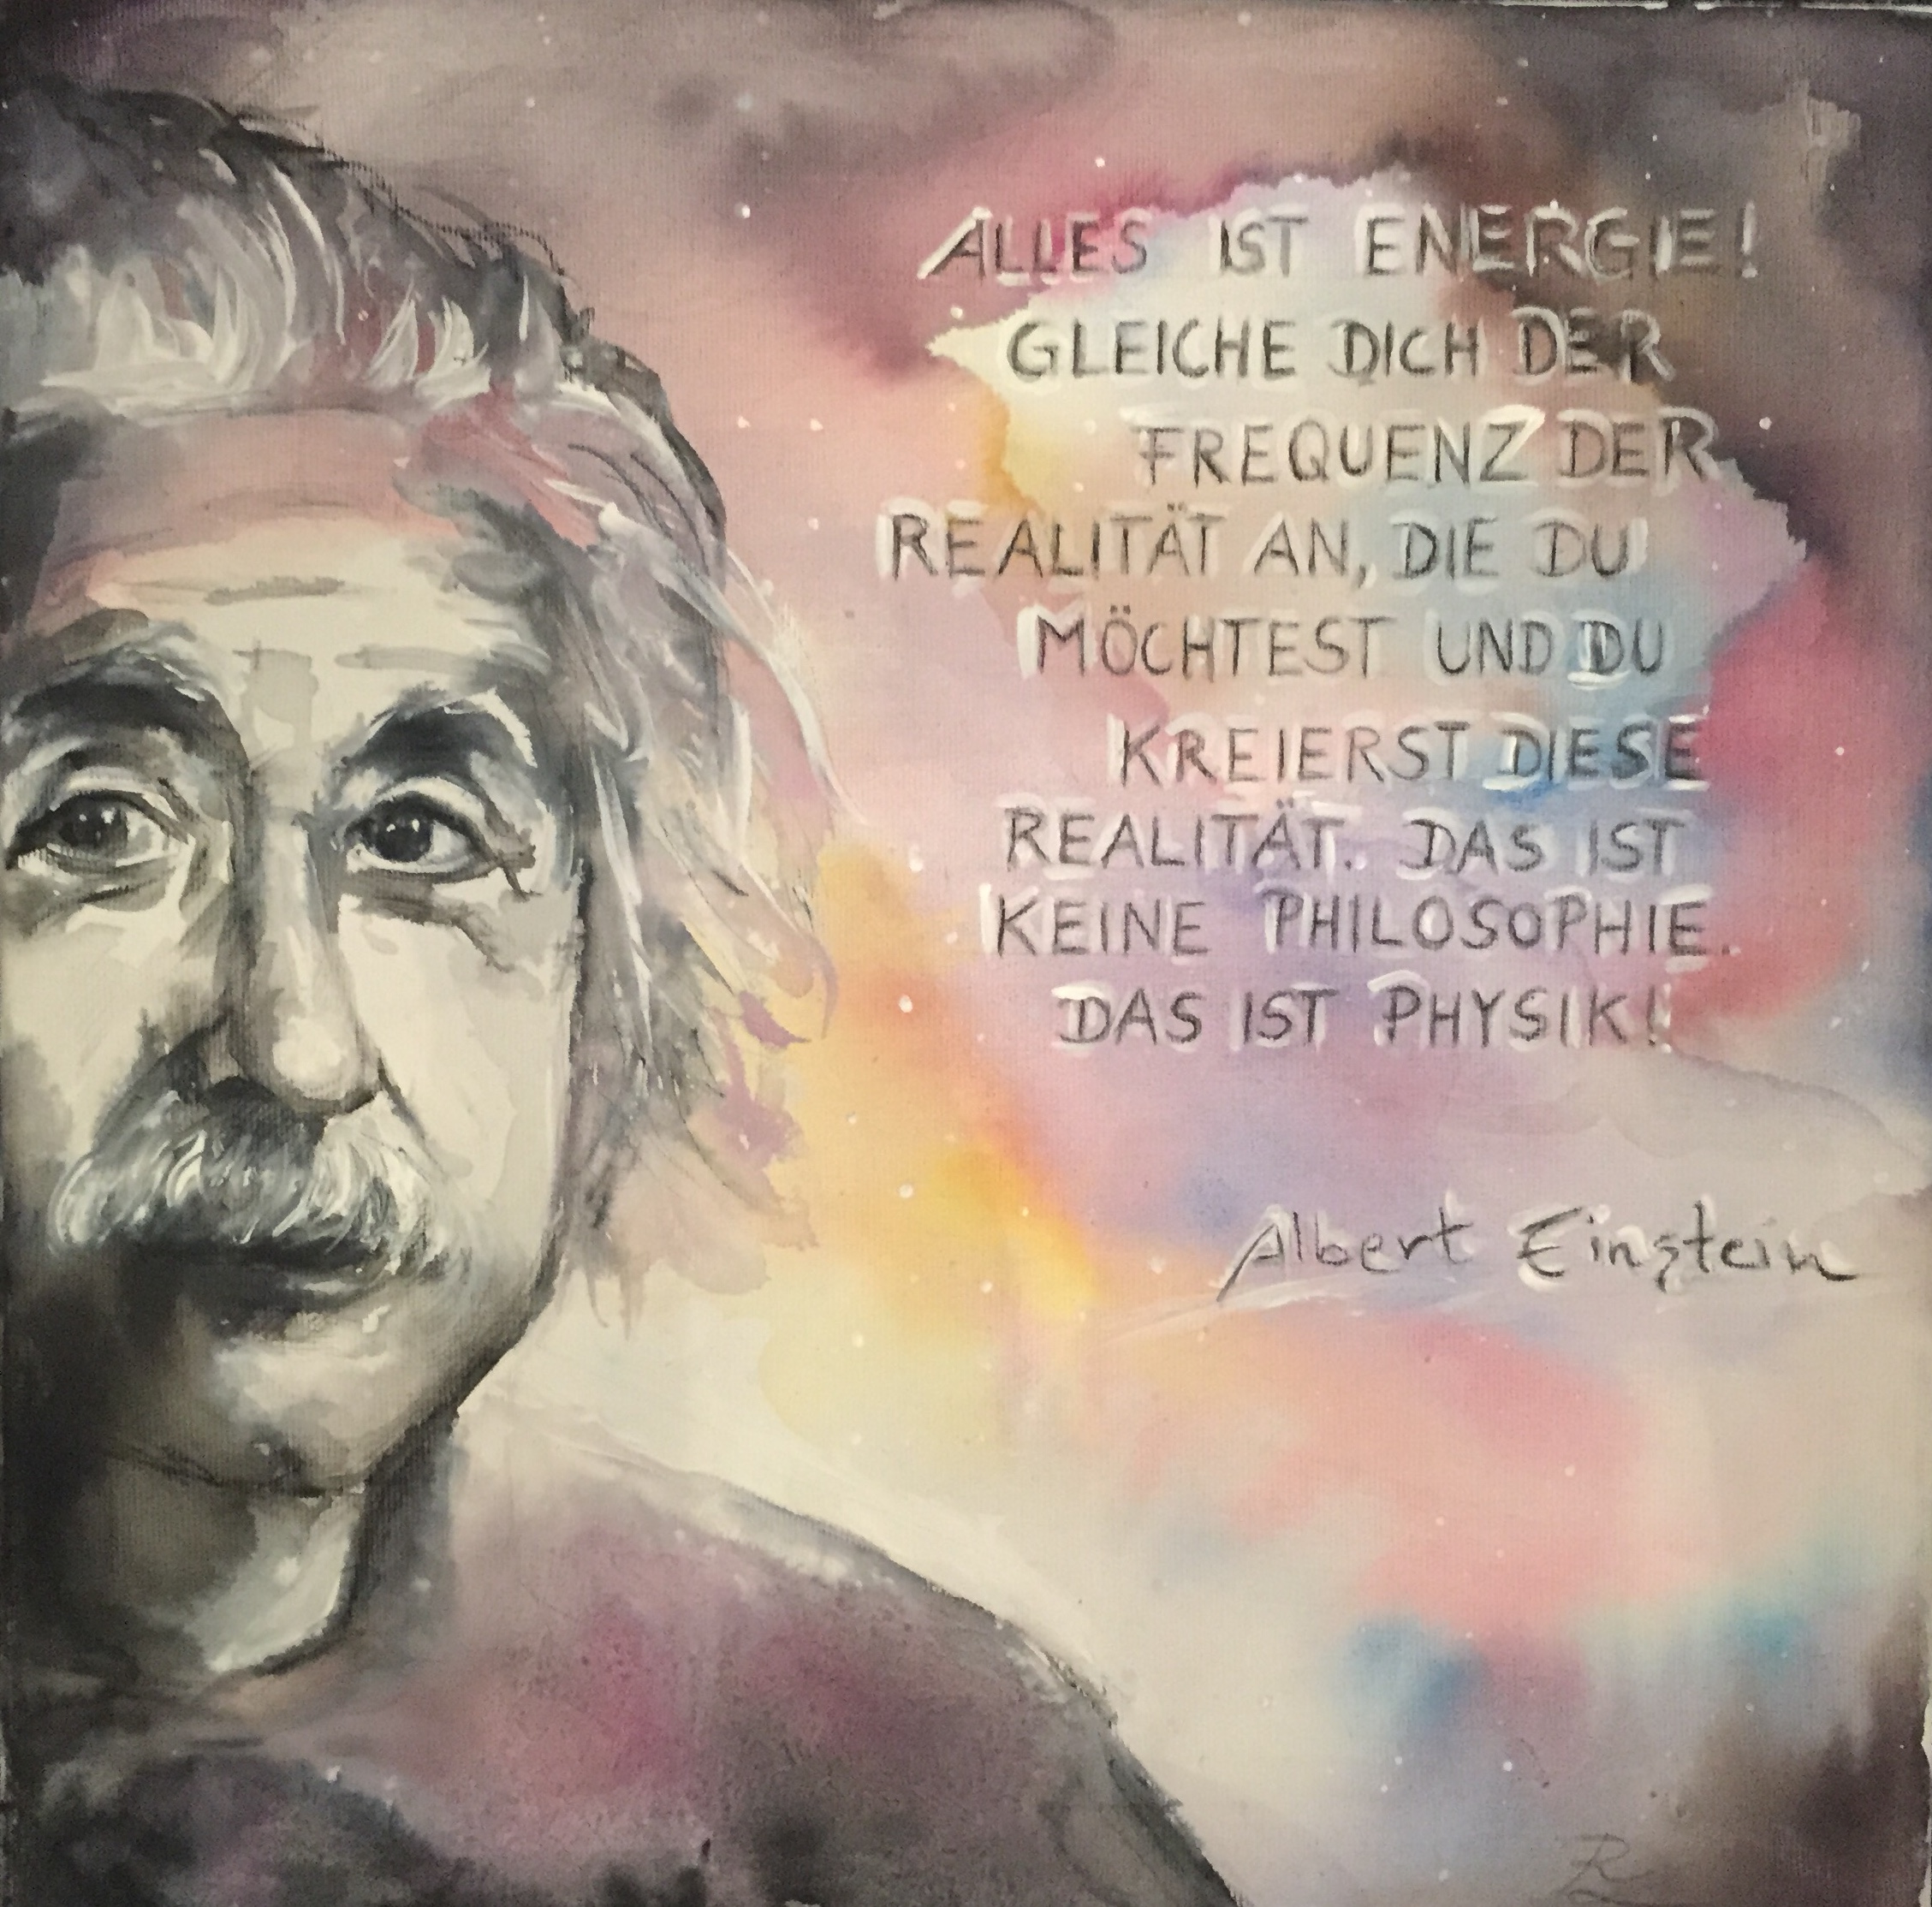 ALLES IST ENERGIE!
GLEICHE DICH DER
FREQUENZ DER
REALITÄT AN, DIE DU
MÖCHTEST UND DU
KREIERST DIESE
REALITÄT. DAS IST
KEINE PHILOSOPHIE.
DAS IST PHYSIK!
Albert Einstein